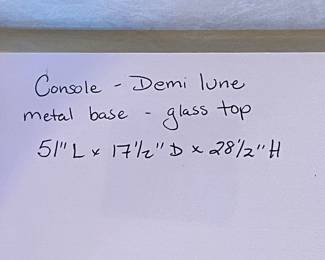 Console - Demi lune
metal base - glass top
51" L x 17 1/2" D x 28 1/2" H